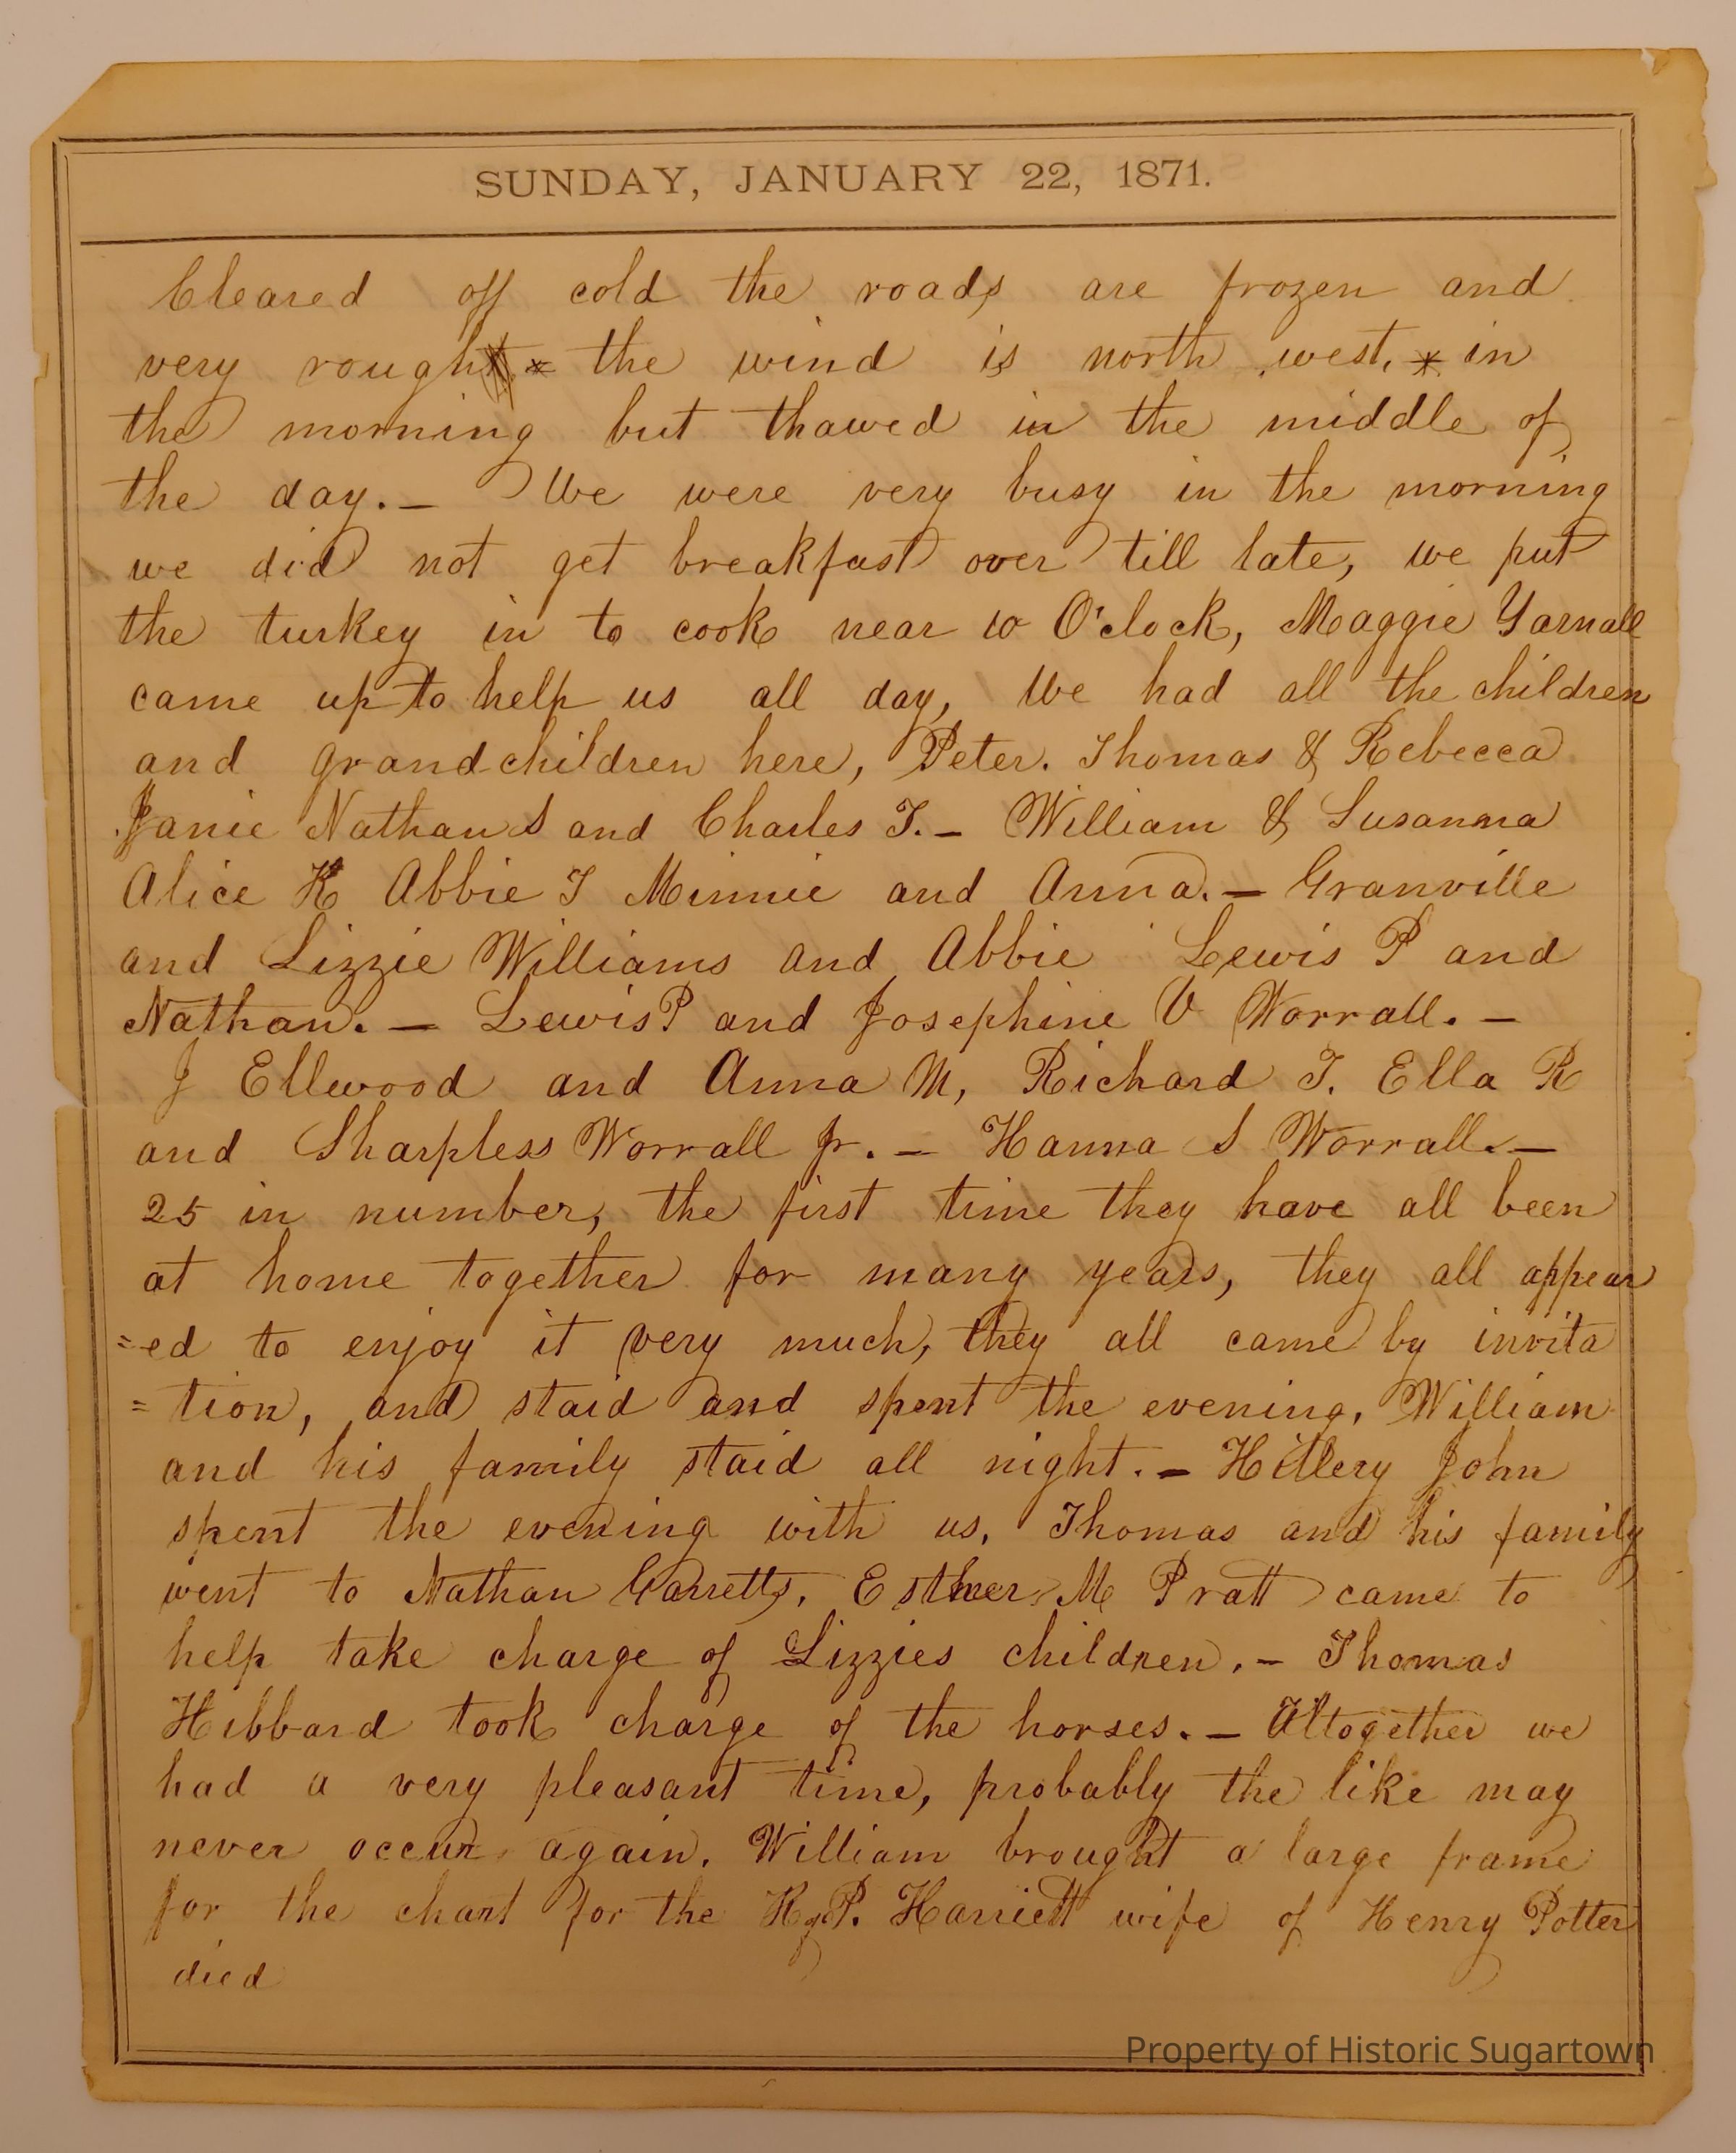 SUNDAY, JANUARY 22, 1871.
Cleared off cold the roads are frozen and
very rough = the wind is north west, * in
the morning but thawed in the middle of
the day. — We were very busy in the morning
we did not get breakfast over till late, we put
the turkey in to cook near 10 O'clock, Maggie Yarnall
came up to help us all day, We had all the children
and grandchildren here, Peter. Thomas & Rebecca
Janie Nathan S and Charles T. — William & Susanna
Alice H Abbie T Minnie and Anna. — Granville
and Lizzie Williams and Abbie Lewis P and
Nathan. — Lewis P and Josephine V Worrall. —
J Ellwood and Anna M, Richard T. Ella R
and Sharpless Worrall Jr. — Hanna S Worrall. —
25 in number, the first time they have all been
at home together for many years, they all appear
=ed to enjoy it very much, they all came by invita
=tion, and staid and spent the evening, William
and his family staid all night. — Hillery John
spent the evening with us, Thomas and his family
went to Nathan Garretts, Esther M Pratt came to
help take charge of Lizzies children. — Thomas
Hibbard took charge of the horses. — Altogether we
had a very pleasant time, probably the like may
never occur again. William brought a large frame
for the chart for the K of P. Harriett wife of Henry Potter
died
Property of Historic Sugartown